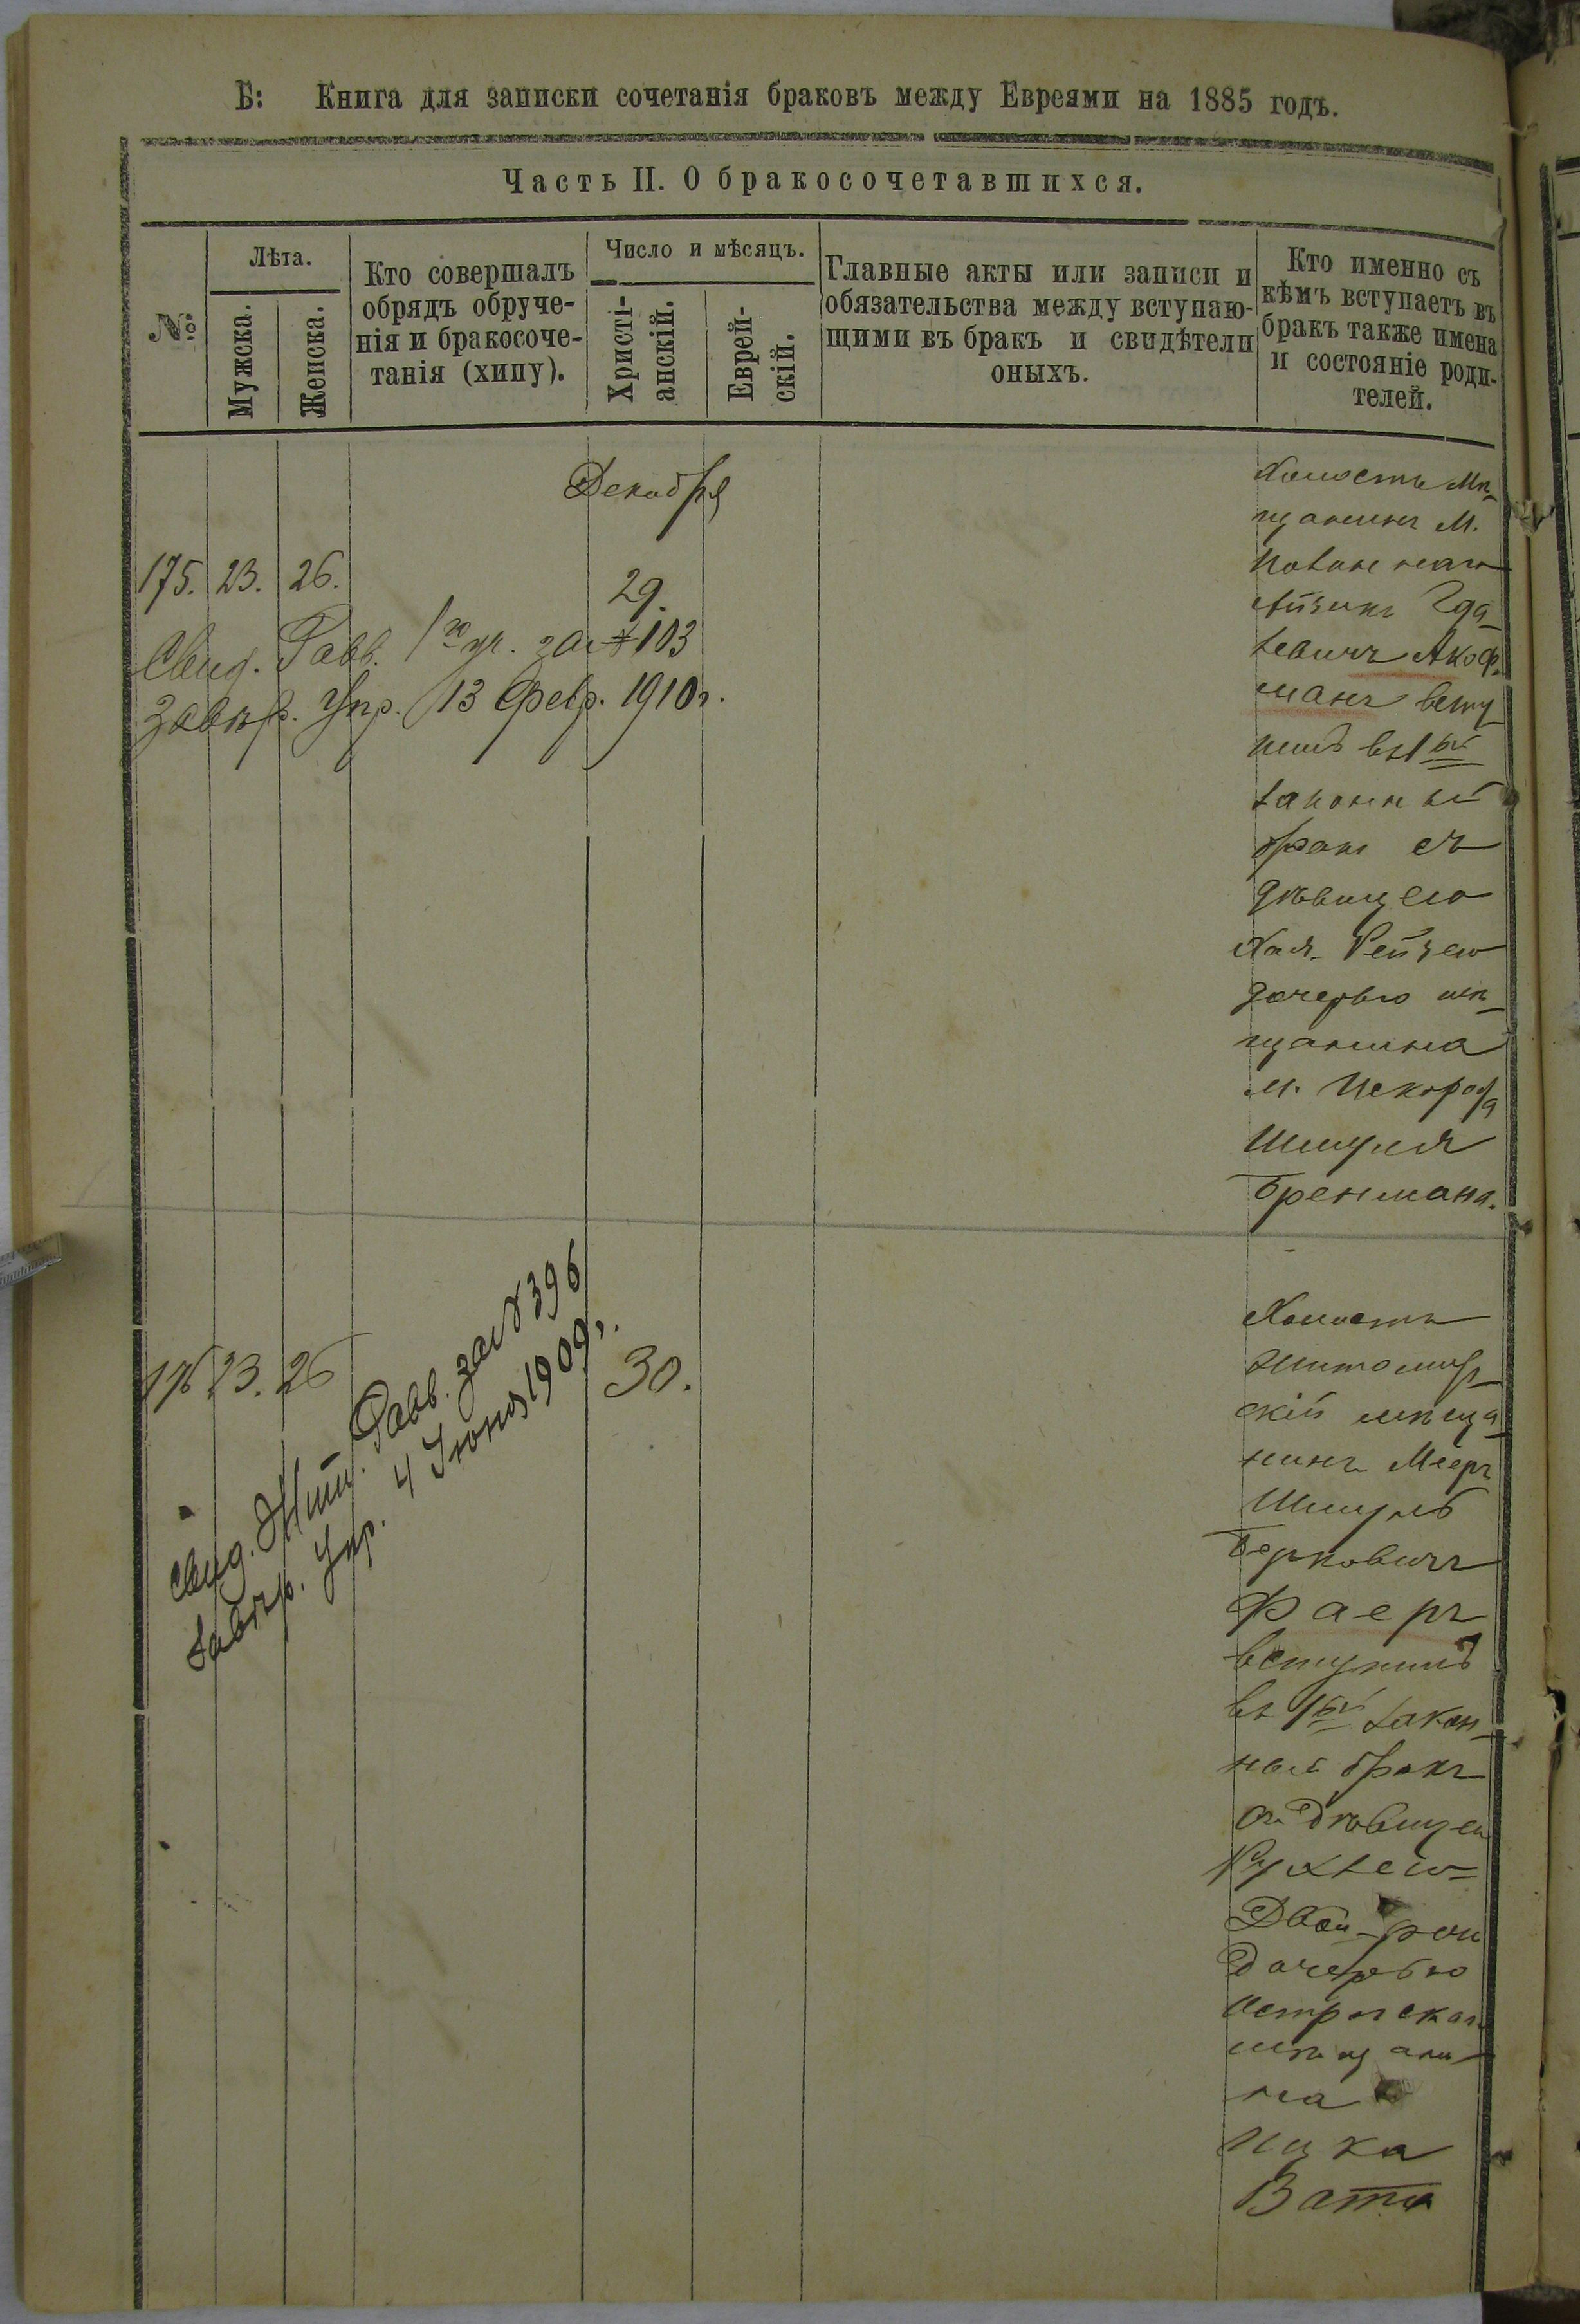 Б: Книга для записки сочетанія браковъ между Евреями на 1885 годъ.
Часть II. О бракосочетавшихся.
№
Лѣта.
Мужска.
Женска.
Кто совершалъ
обрядъ обруче-
нія и бракосоче-
танія (хипу).
Число и мѣсяцъ.
Христі-
анскій.
Еврей-
скій.
Главные акты или записи и
обязательства между вступаю-
щими въ бракъ и свидѣтели
оныхъ.
Кто именно съ
кѣмъ вступаетъ въ
бракъ также имена
и состояніе роди-
телей.
Декабря
175. 23. 26.
29.
Свид. Равв. за № 103
завѣр. Упр. 13 Февр. 1910 г.
Холостъ Мѣ-
щанинъ М.
Айзикъ
Акоф-
манъ всту
пилъ въ 1ый
законный
бракъ съ
дѣвицею
Хая-Рейзею
дочерью мѣ-
щанина
м. Искорост
Шмуля
Бренмана.
176 23. 26
30.
Свид. Жит. Равв. за № 396
завѣр. Упр. 4 Іюня 1909 г.
Холостъ
Житомир-
скій мѣща
нинъ Мееръ
Шмуль
Берковичъ
Фаеръ
вступилъ
въ 1ый закон-
ный бракъ
съ дѣвицею
Рухлею-
Двой-
дочерью
Острогскаго
мѣщани-
на
Ицка